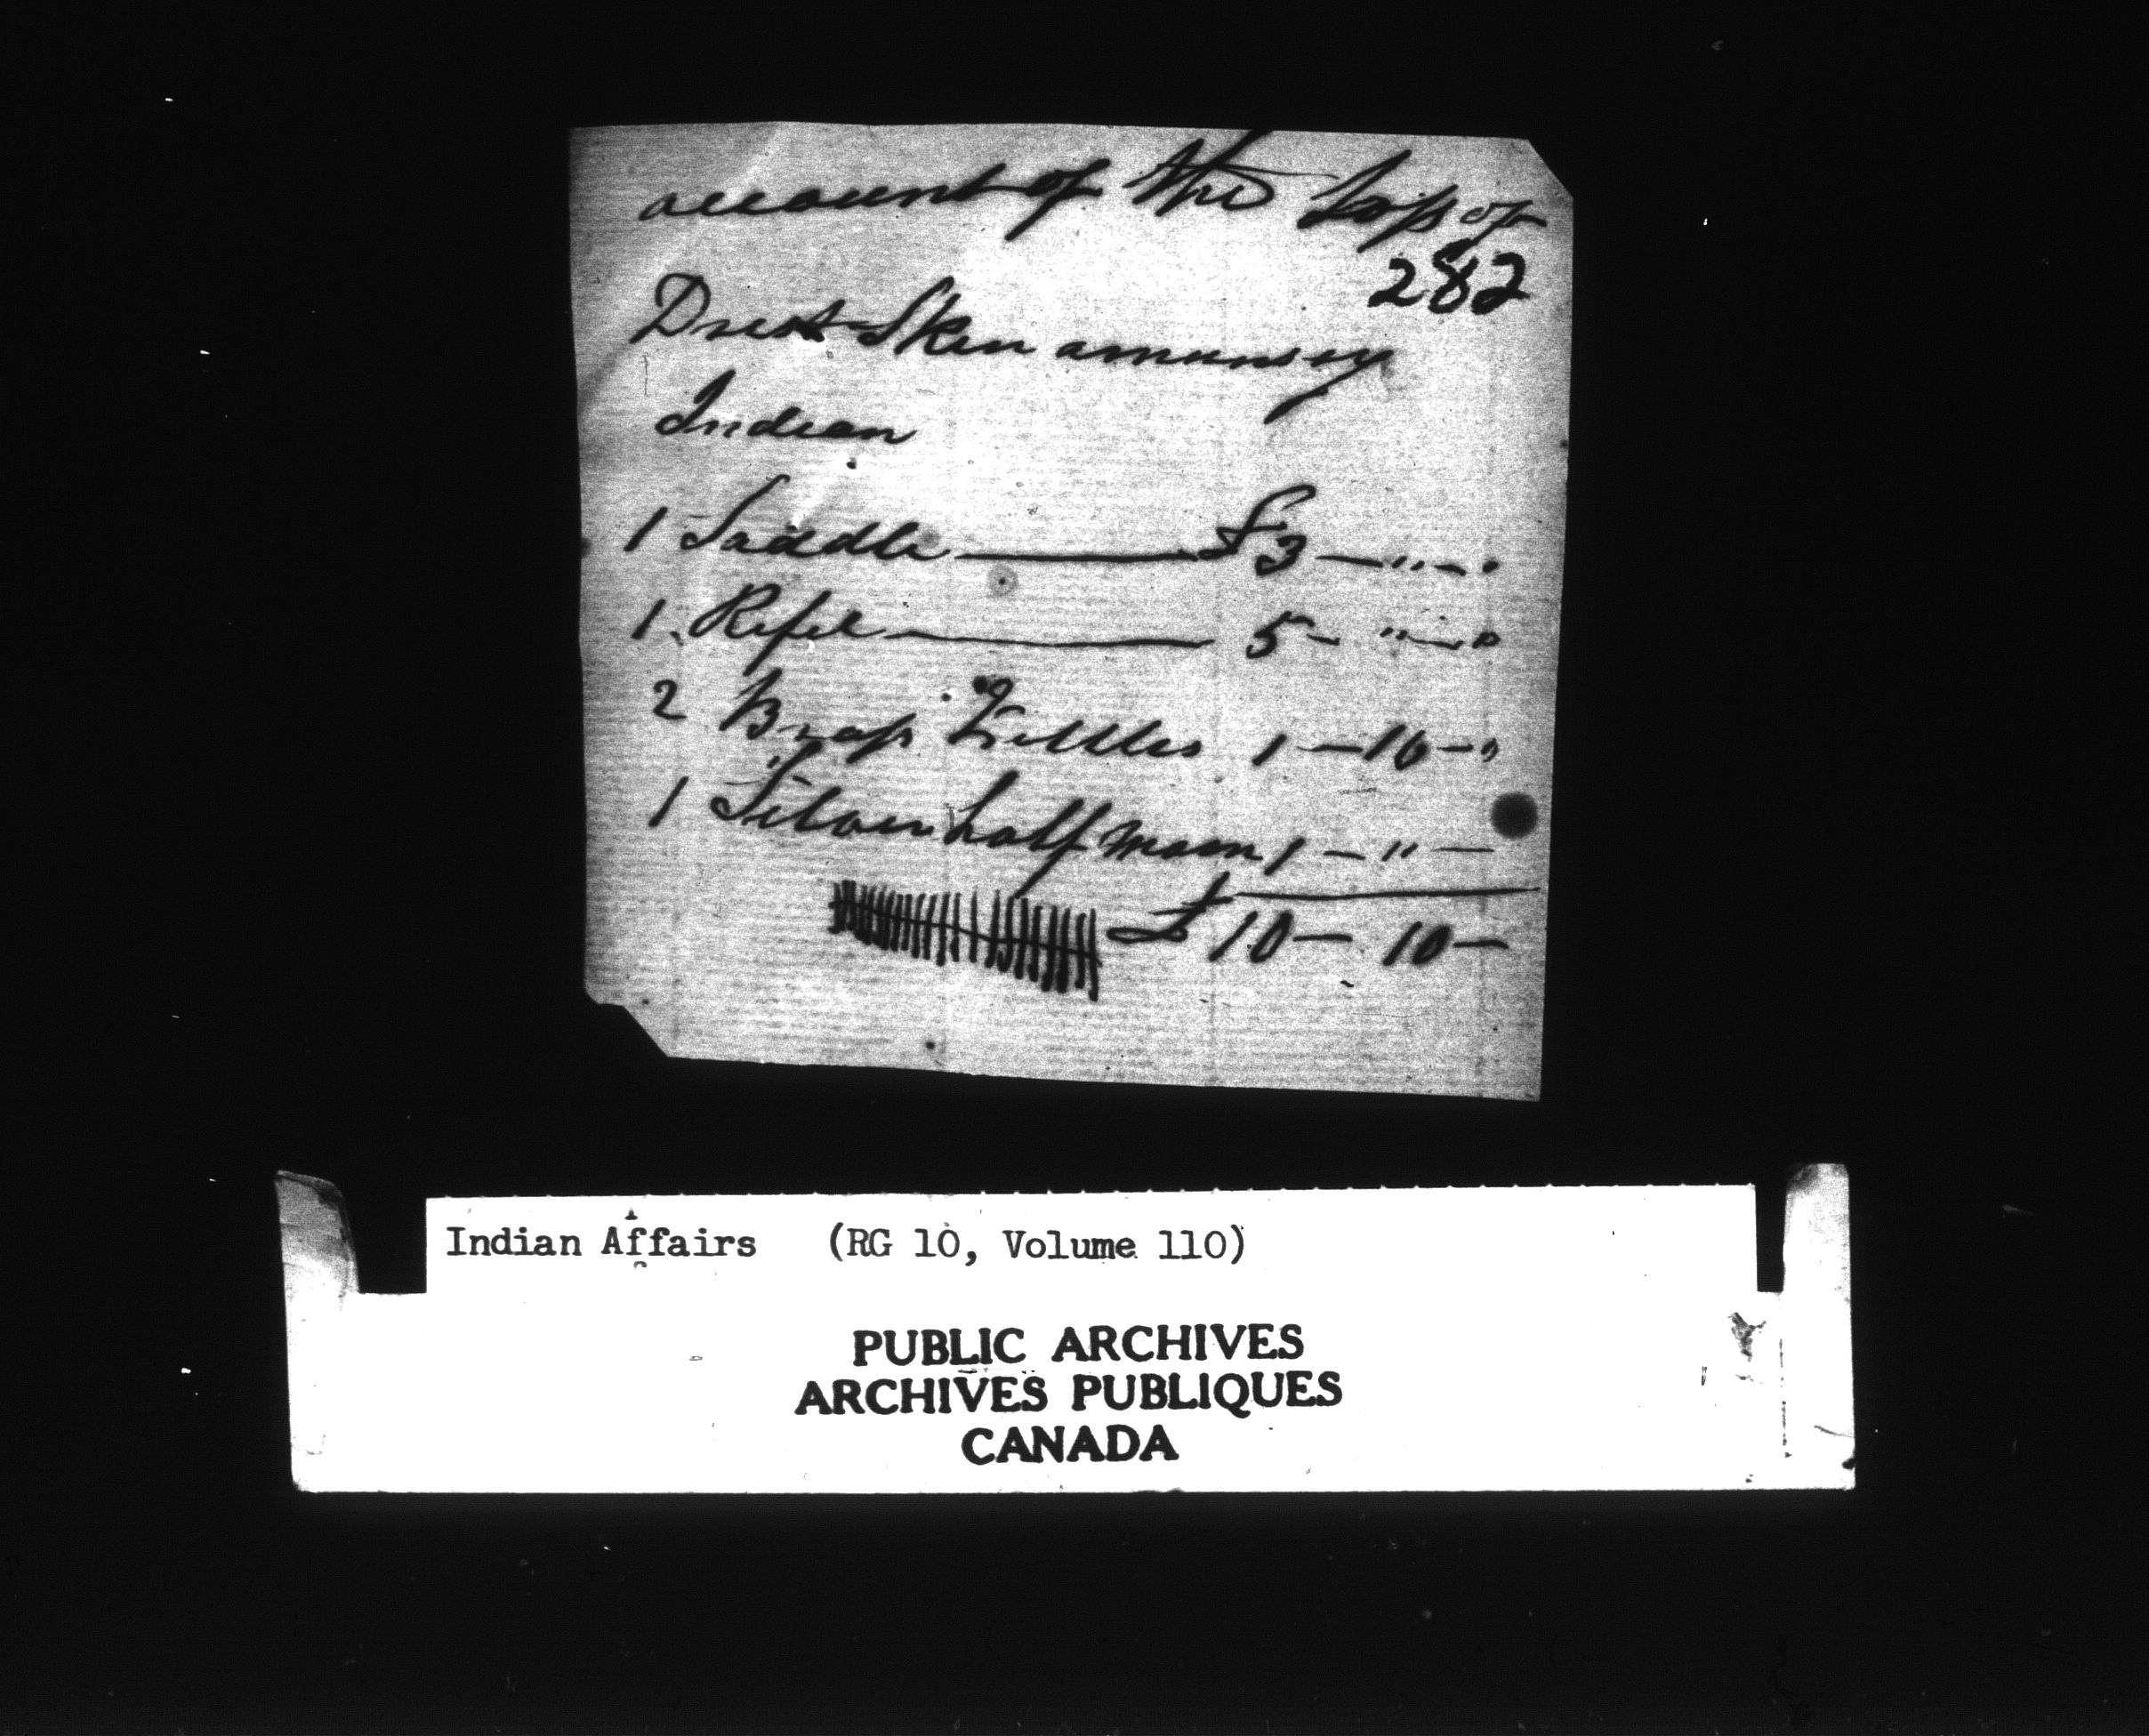 account of the Loss of
282
Drest Sken a munsey
Indean
1 Saddle £ 3 — " — "
1 Rifel 5 — " — "
2 Brass Kittles 1 — 10 — "
1 Silver half moon 1 — " —
£ 10 — 10 —
Indian Affairs (RG 10, Volume 110)
PUBLIC ARCHIVES
ARCHIVES PUBLIQUES
CANADA